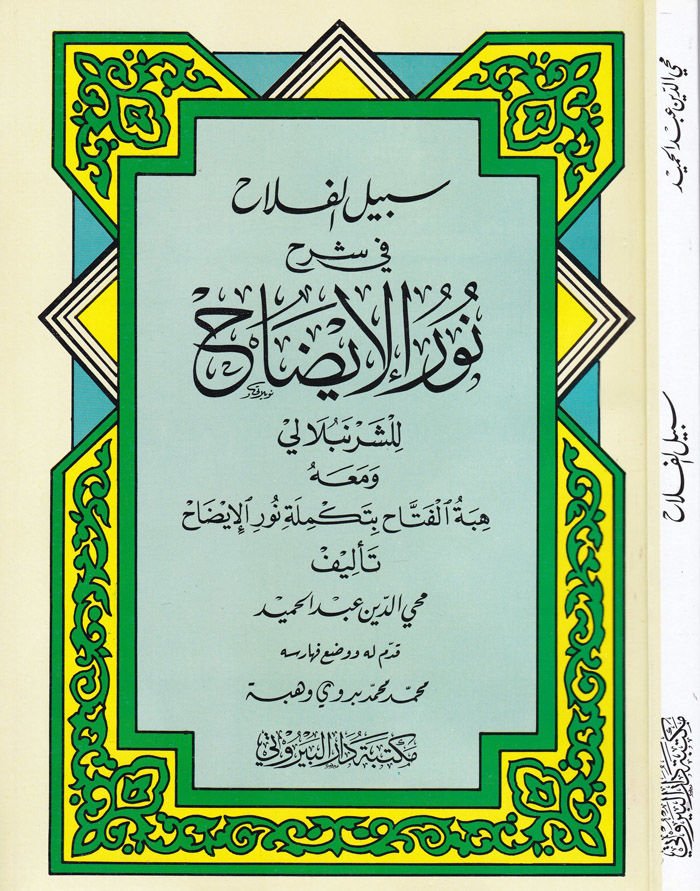 سبيل الفلاح
في شرح
نُورُ الإِيضَاحِ
لِلشَّرنبُلَالي
وَمَعَهُ
هِبَةُ الْفَتَّاحِ بِتَكْمِلَةِ نُورِ الإِيضَاح
تَأليفْ
محي الدين عبد الحميد
قدم له ووضع فهارسه
محمد محمد بروي وهبة
مكتبة دار البيروتي
محي الدين عبد الحميد
سبيل الفلاح
مكتبة دار البيروتي